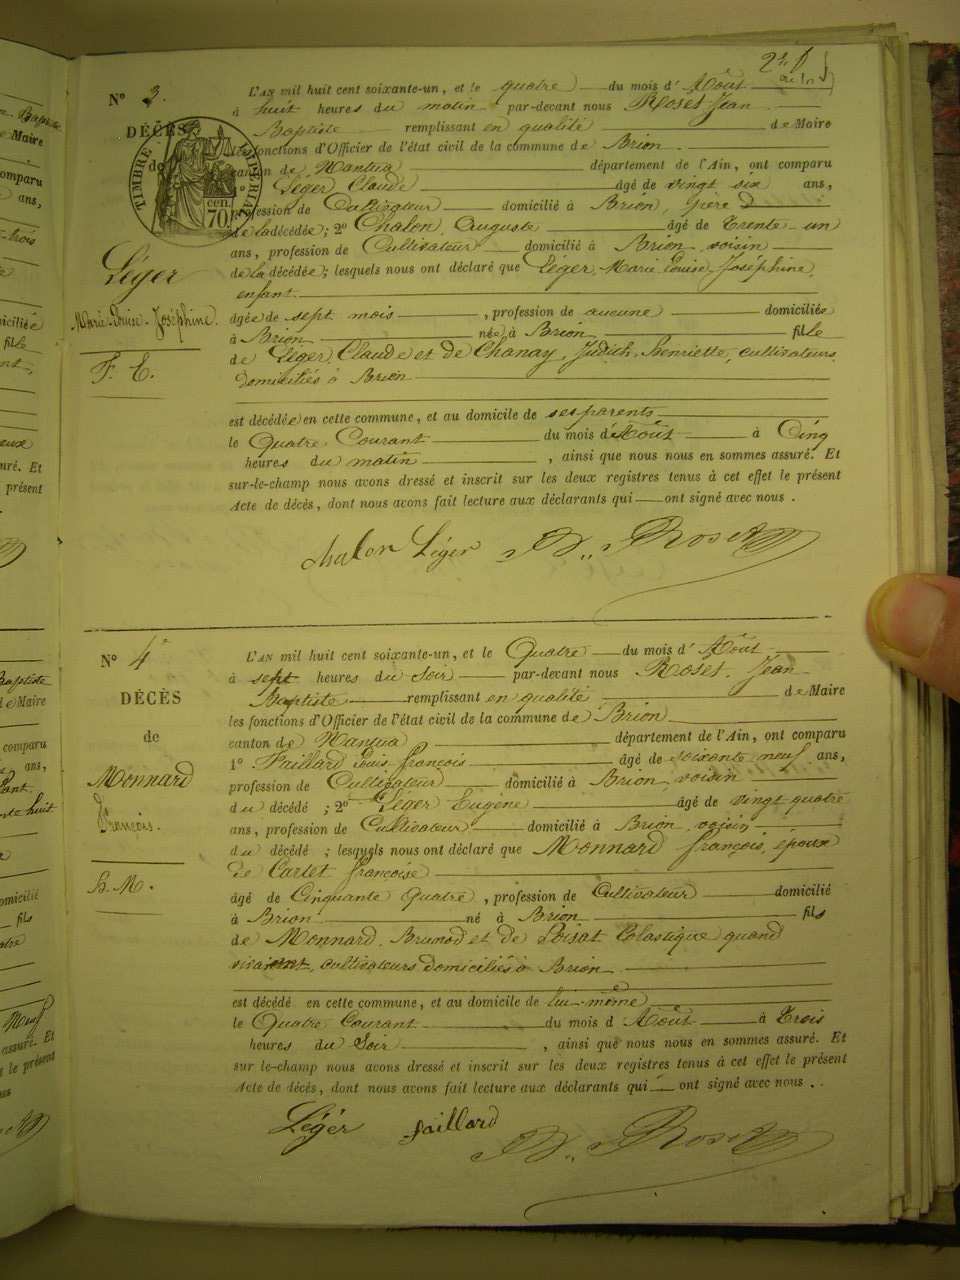 N° 3.
DÉCÈS
de
TIMBRE IMPÉRIAL
70 cen.
Léger
Marie-Louise-Joséphine.
F. E.
L'AN mil huit cent soixante-un, et le quatre du mois d'Août
à huit heures du matin par-devant nous Roset Jean
Baptiste remplissant en qualité de Maire
les fonctions d'Officier de l'état civil de la commune de Brion
canton de Nantua département de l'Ain, ont comparu
1° Léger Claude âgé de vingt six ans,
profession de Cultivateur domicilié à Brion, père
de la décédée; 2° Chalon, Auguste âgé de Trente-un
ans, profession de Cultivateur domicilié à Brion voisin
de la décédée; lesquels nous ont déclaré que Léger Marie Louise Joséphine,
enfant
âgée de sept mois, profession de aucune domiciliée
à Brion née à Brion fille
de Léger Claude et de Chanay, Judith, Henriette, cultivateurs,
domiciliés à Brion
est décédée en cette commune, et au domicile de ses parents
le Quatre Courant du mois d'Août à Cinq
heures du matin, ainsi que nous nous en sommes assuré. Et
sur-le-champ nous avons dressé et inscrit sur les deux registres tenus à cet effet le présent
Acte de décès, dont nous avons fait lecture aux déclarants qui ont signé avec nous.
chalon Léger Roset
N° 4
DÉCÈS
de
Monnard
François.
H. M.
L'AN mil huit cent soixante-un, et le Quatre du mois d'Août
à sept heures du Soir par-devant nous Roset, Jean
Baptiste remplissant en qualité de Maire
les fonctions d'Officier de l'état civil de la commune de Brion
canton de Nantua département de l'Ain, ont comparu
1° Faillard Louis françois âgé de soixante neuf ans,
profession de Cultivateur domicilié à Brion, voisin
du décédé; 2° Léger Eugène âgé de vingt quatre
ans, profession de Cultivateur domicilié à Brion, voisin
du décédé; lesquels nous ont déclaré que Monnard françois, époux
de Carlet françoise
âgé de Cinquante Quatre, profession de Cultivateur domicilié
à Brion né à Brion fils
de Monnard, Brunod et de Loisat Colastique quand
vivaient, cultivateurs domiciliés à Brion
est décédé en cette commune, et au domicile de lui-même
le Quatre Courant du mois d'Août à Trois
heures du Soir, ainsi que nous nous en sommes assuré. Et
sur-le-champ nous avons dressé et inscrit sur les deux registres tenus à cet effet le présent
Acte de décès, dont nous avons fait lecture aux déclarants qui ont signé avec nous.
Léger faillard Roset